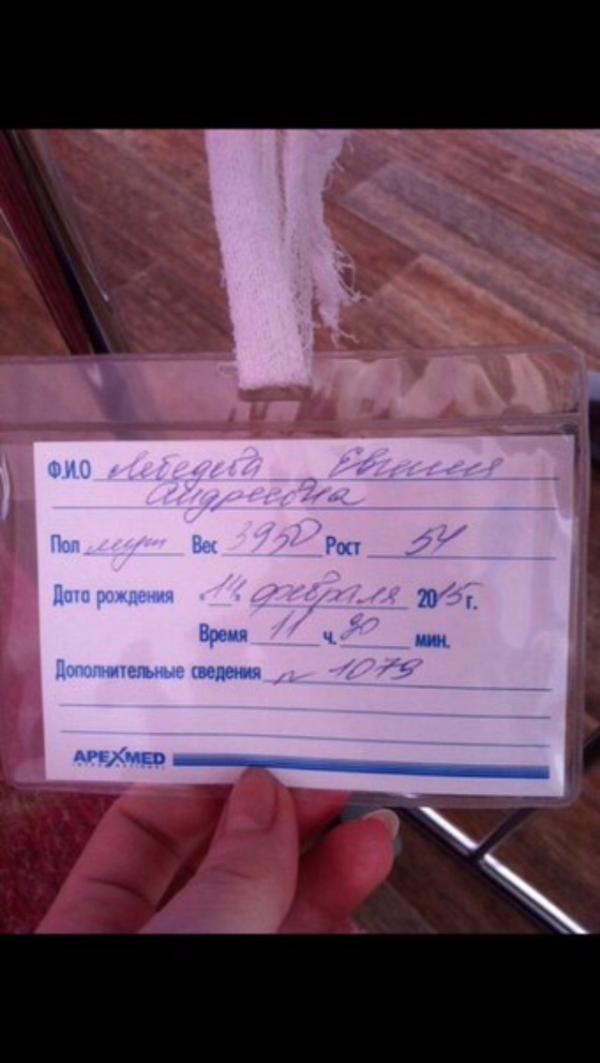 Ф.И.О Лебедева Евгения
Андреевна
Пол муж Вес 3950 Рост 54
Дата рождения 14 февраля 2015 г.
Время 11 ч. мин.
Дополнительные сведения № 1079
APEXMED
INTERNATIONAL